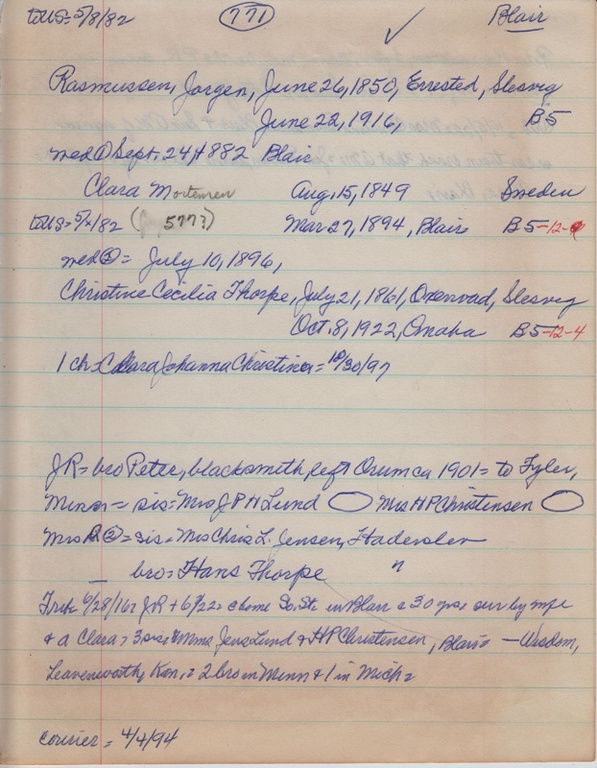 to US = 5/8/82 (771) ✓ Blair
Rasmussen, Jorgen, June 26, 1850, Errested, Slesvig
June 22, 1916, B5
med ① Sept. 24, 1882 Blair
Clara Mortensen Aug. 15, 1849 Sweden
to US = 5/x/82 ( 577?) Mar 27, 1894, Blair B5-12-
med ② = July 10, 1896,
Christine Cecilia Thorpe, July 21, 1861, Oxenvad, Slesvig
Oct. 8, 1922, Omaha B5-12-4
1 ch = Clara Johanna Christina = 10/30/97
JR = bro Peter, blacksmith, left Orum ca 1901 = to Tyler,
Minn = sis = Mrs J P H Lund Mrs HP Christensen
Mrs R ② = sis = Mrs Chris L. Jensen, Haderslev
bro = Hans Thorpe "
Trib 6/28/16 = JR + 6/22 = home So. St. in Blair 30 yrs = surv by wife
& a Clara > 3 sis = Mmes Jens Lund & HP Christensen, Blair = — Wisdom,
Leavenworth, Kan. = 2 bro in Minn & 1 in Mich =
Courier = 4/4/94